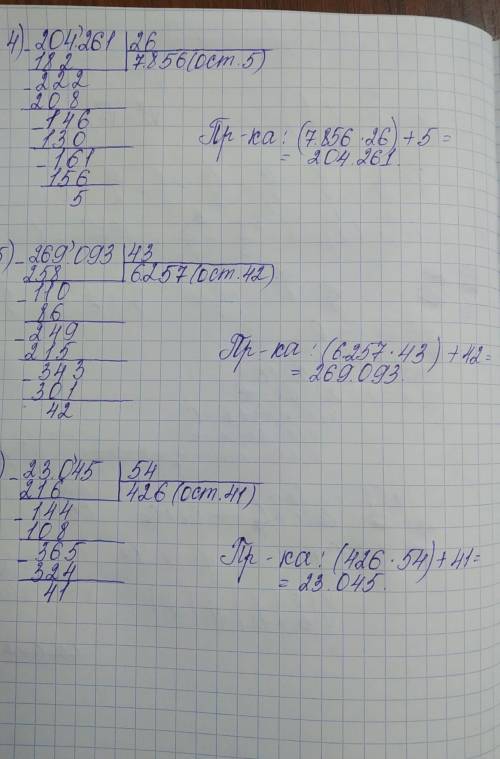 4) - 204'261 | 26
182 | 7.856 (ост. 5)
- 222
208
- 146
130
- 161
156
5
Пр-ка: (7.856 · 26) + 5 =
= 204.261.
5) - 269'093 | 43
258 | 6.257 (ост. 42)
- 110
86
- 249
215
- 343
301
42
Пр-ка: (6.257 · 43) + 42 =
= 269.093.
) - 23.0'45 | 54
216 | 426 (ост. 41)
- 144
108
- 365
324
41
Пр-ка: (426 · 54) + 41 =
= 23.045.